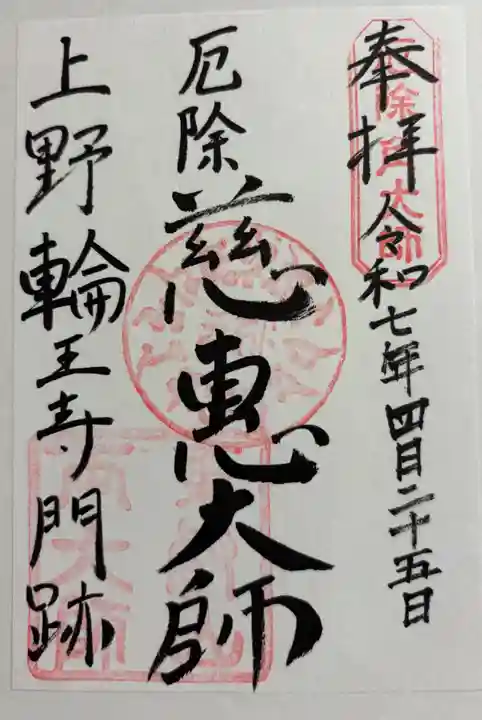 奉拝 令和七年四月二十五日
厄除 慈恵大師
上野 輪王寺門跡
厄除角大師